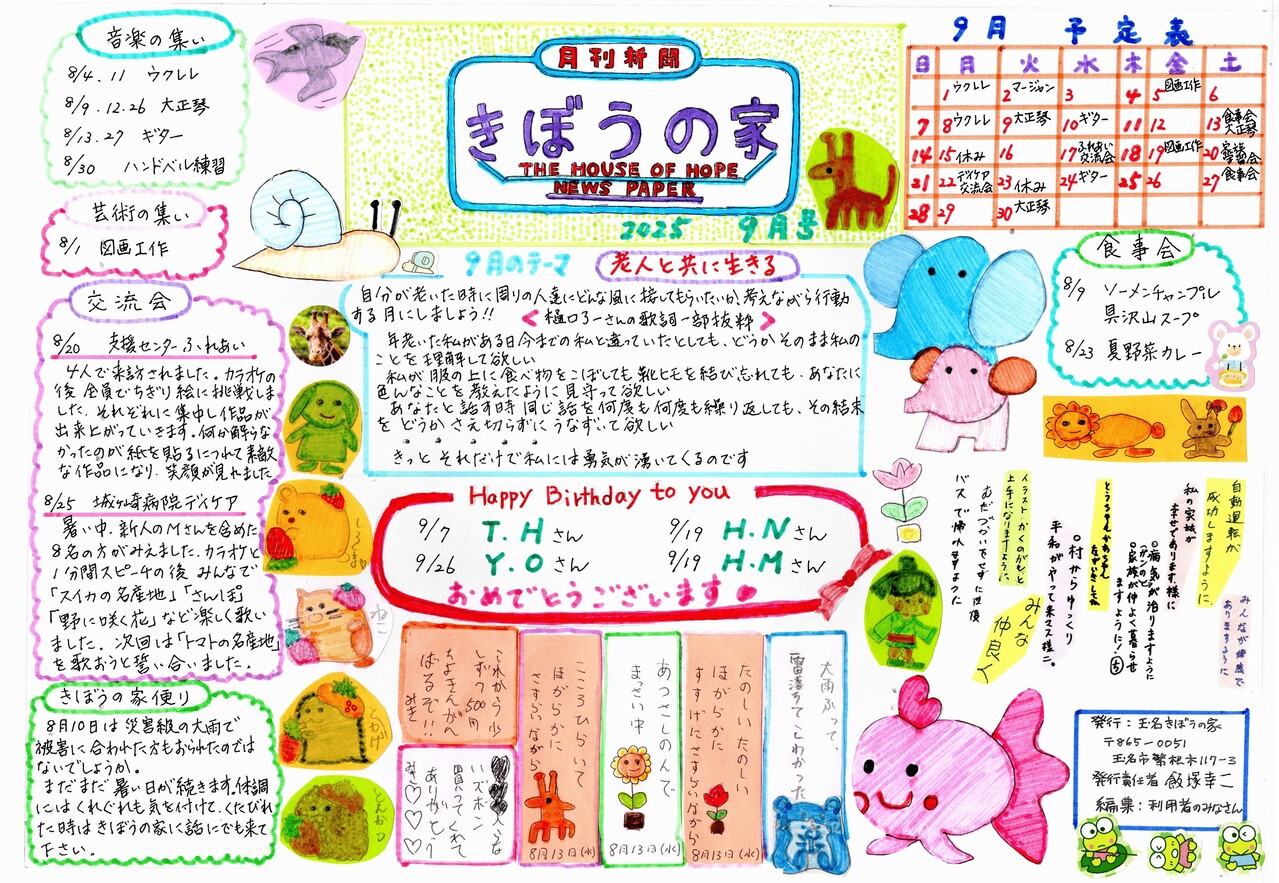 音楽の集い
8/4.11 ウクレレ
8/9.12.26 大正琴
8/13.27 ギター
8/30 ハンドベル練習
芸術の集い
8/1 図画工作
交流会
8/20 支援センターふれあい
4人で来訪されました。カラオケの
後、全員でちぎり絵に挑戦しま
した。それぞれに集中し作品が
出来上がっていきます。何か解らな
かったのが紙を貼るにつれて素敵
な作品になり、笑顔が見れました
8/25 城ヶ崎病院デイケア
暑い中、新人のMさんを含めた
8名の方がみえました。カラオケと
1分間スピーチの後 みんなで
「スイカの名産地」「さんぽ」
「野に咲く花」など楽しく歌い
ました。次回は「トマトの名産地」
を歌おうと誓い合いました。
きぼうの家便り
8月10日は災害級の大雨で
被害に合われた方もおられたのでは
ないでしょうか。
まだまだ暑い日が続きます。体調
にはくれぐれも気を付けて、くたびれ
た時はきぼうの家に話にでも来て
下さい。
月刊新聞
きぼうの家
THE HOUSE OF HOPE
NEWS PAPER
2025 9月号
9月のテーマ 老人と共に生きる
自分が老いた時に周りの人達にどんな風に接してもらいたいか、考えながら行動
する月にしましょう!! <樋口了一さんの歌詞一部抜粋>
年老いた私がある日今までの私と違っていたとしても、どうかそのまま私の
ことを理解して欲しい
私が服の上に食べ物をこぼしても靴ヒモを結び忘れても、あなたに
色んなことを教えたように見守って欲しい
あなたと話す時 同じ話を何度も何度も繰り返しても、その結末
を どうか さえ切らずにうなずいて欲しい
きっと それだけで私には勇気が湧いてくるのです
Happy Birthday to you
9/7 T.Hさん 9/19 H.Nさん
9/26 Y.Oさん 9/19 H.Mさん
おめでとうございます
しろくま
ねこ
とかげ
とんかつ
これから少
しずつ500円
ちょきんがん
ばるぞ!!
みき
いズボン
買ってくれて
ありがとう
こころひらいて
ほがらかに
さすらいながら
8月13日(水)
あつさしのんで
まっさい中
8月13日(水)
たのしいたのしい
ほがらかに
すすけにさすらいながら
8月13日(水)
大雨ふって、
雷落ちてくこわかった
9月 予定表
日 月 火 水 木 金 土
1 ウクレレ 2 マージャン 3 4 5 図画工作 6
7 8 ウクレレ 9 大正琴 10 ギター 11 12 13 食事会 大正琴
14 15 休み 16 17 ふれあい交流会 18 19 図画工作 20 家族学習会
21 22 デイケア交流会 23 休み 24 ギター 25 26 27 食事会
28 29 30 大正琴
食事会
8/9 ソーメンチャンプル
具沢山スープ
8/23 夏野菜カレー
自動運転が
成功しますように。
みんなが健康で
ありますように
私の家族が
幸せであります様に
○病気が治りますように
○家族が仲よく暮らせ
ますように!
○村からゆっくり
平和がやって来マス様ニ。
みんな
仲良く
イラストかくのがもっと
上手になりますように。
むだづかいをせずに往復
バスで帰れますように
発行:玉名きぼうの家
〒865-0051
玉名市繁根木117-3
発行責任者 飯塚幸二
編集:利用者のみなさん